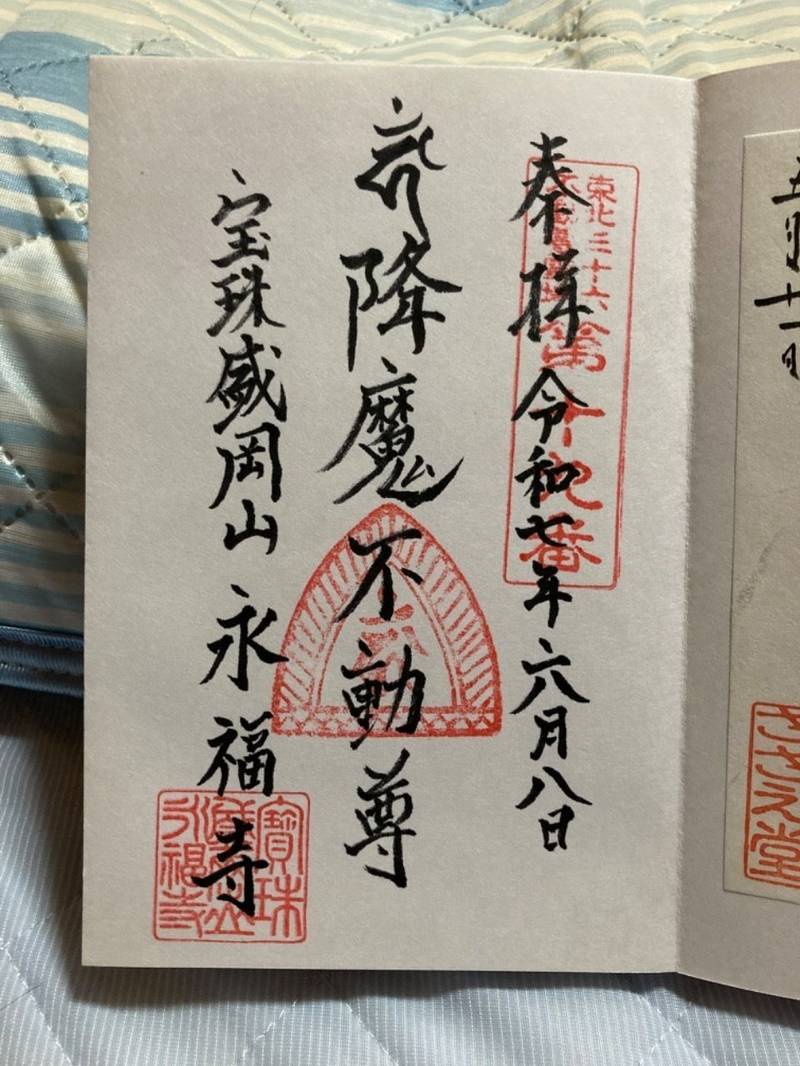 五月十一日
さざえ堂
奉拝 令和七年六月八日
東北三十六
不動尊霊場
第十九番
降魔不動尊
宝珠盛岡山 永福寺
寶珠
盛岡山
永福寺